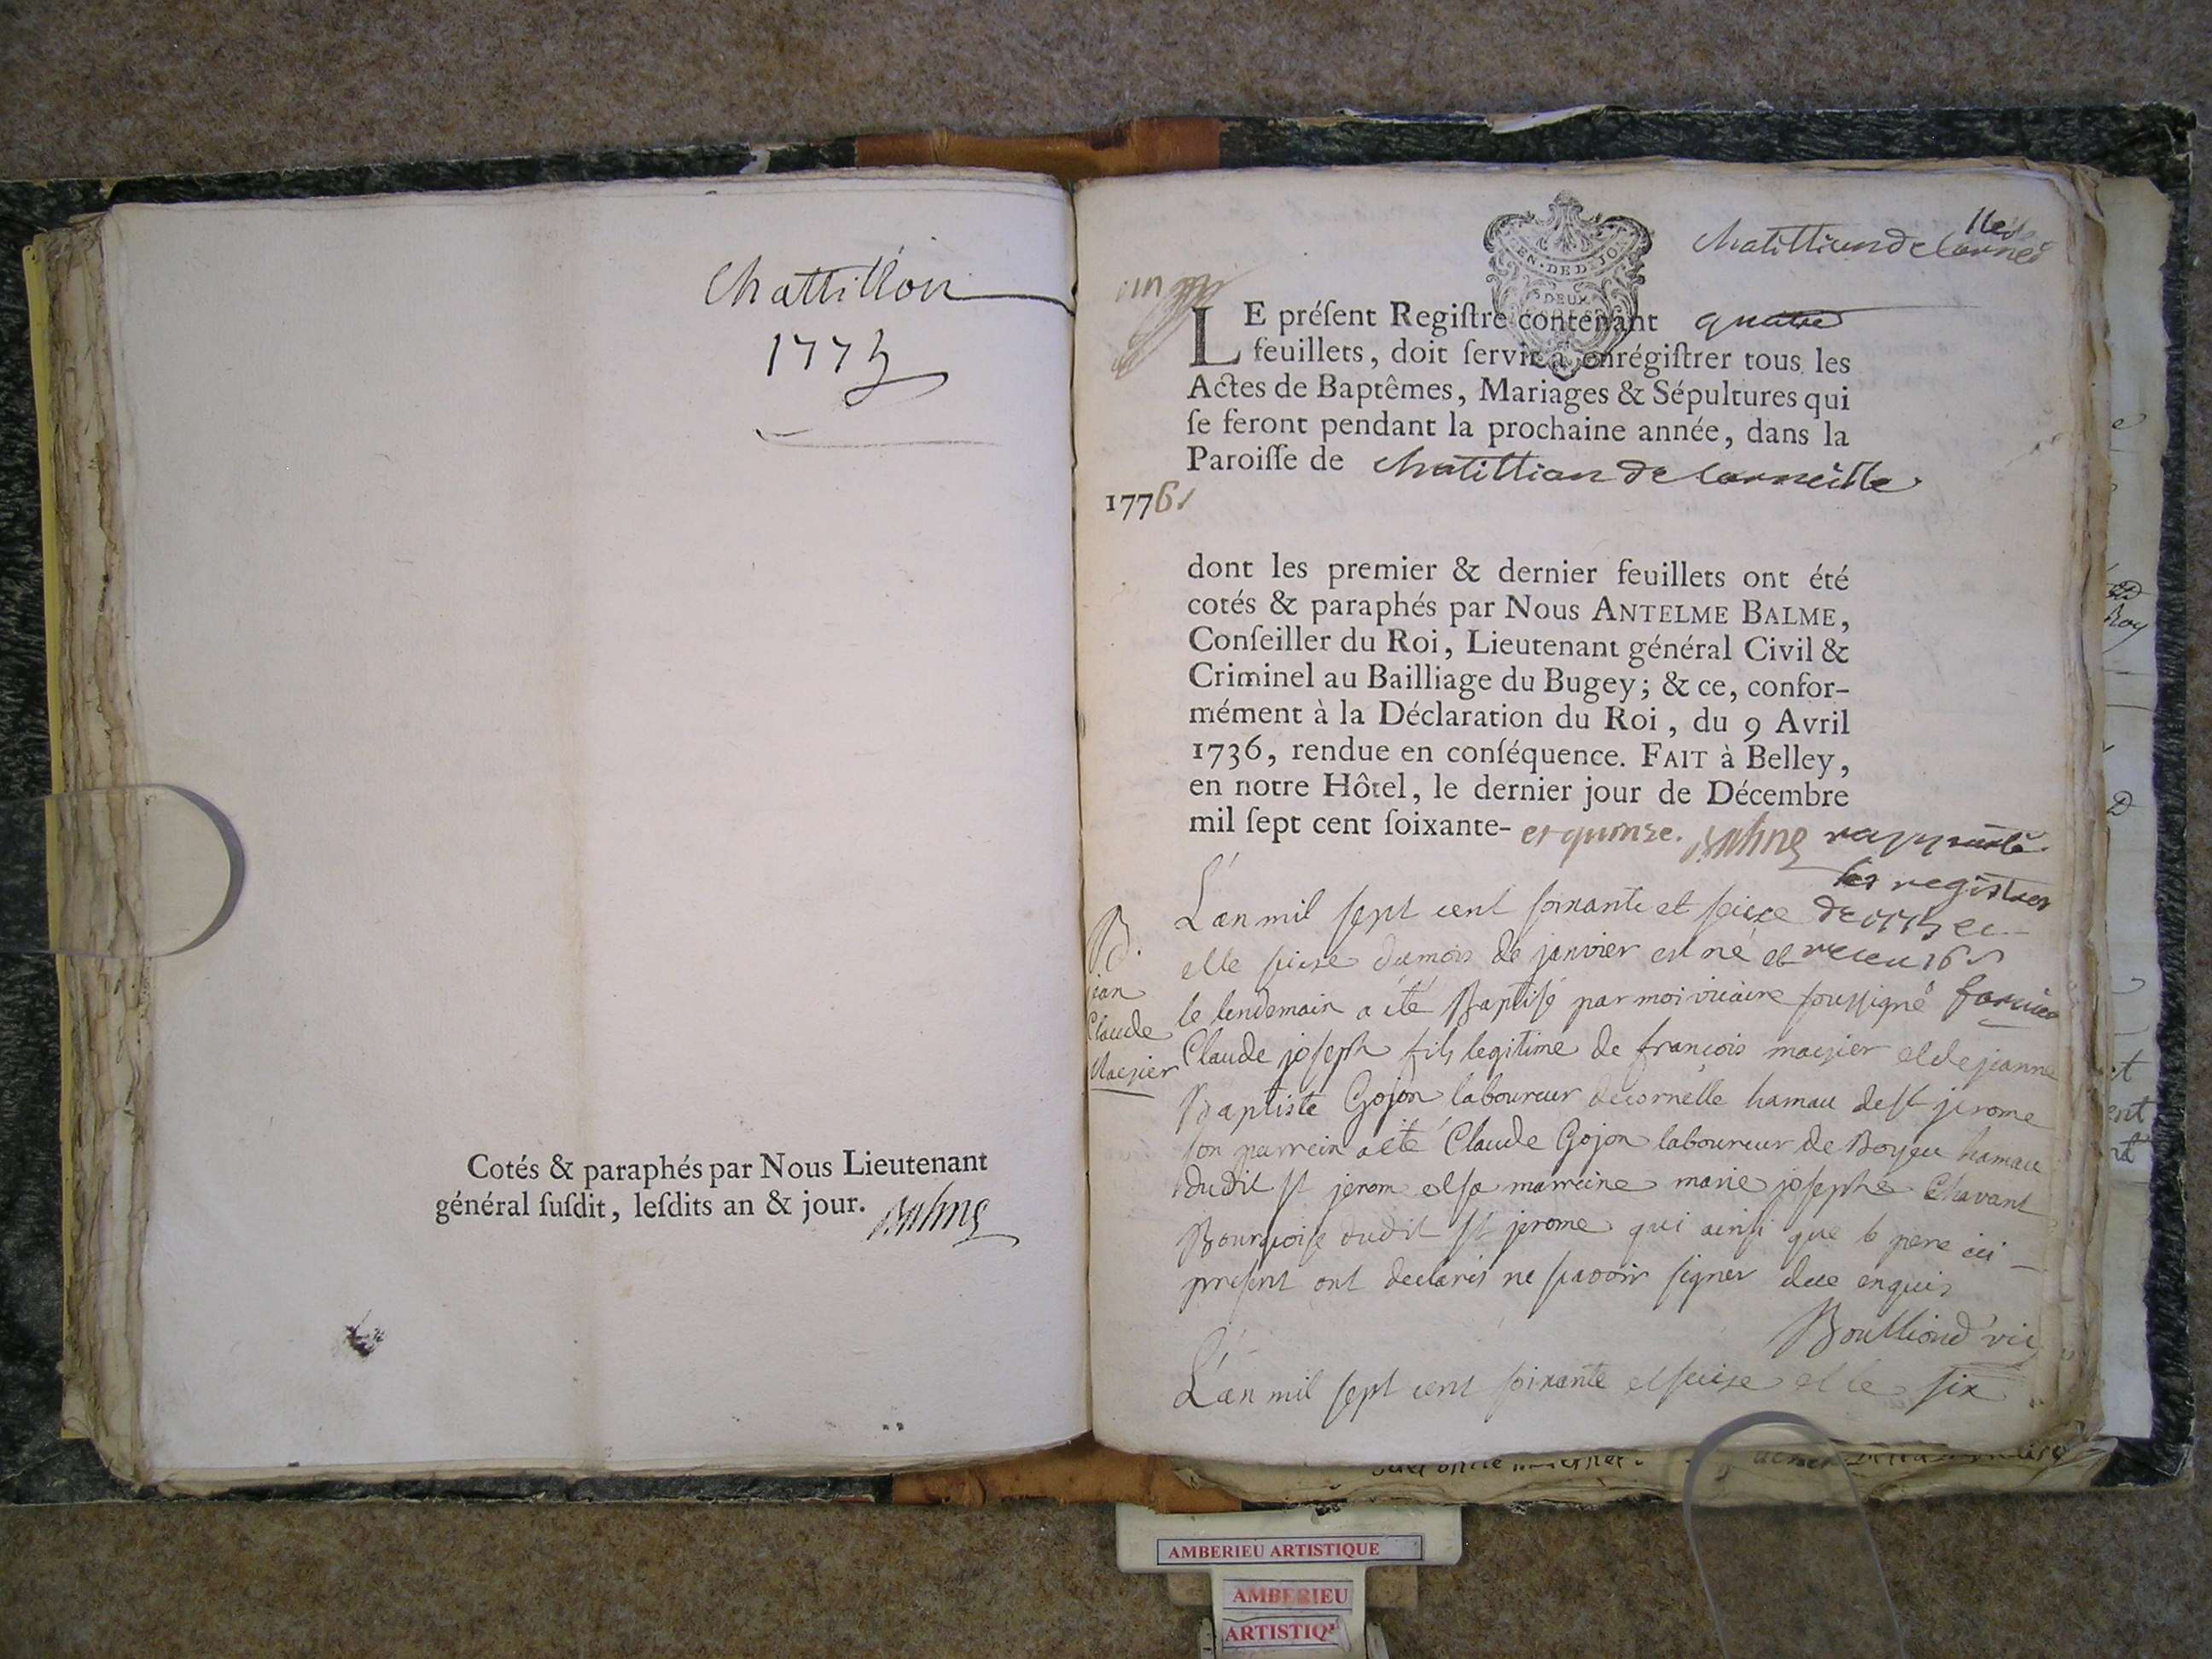 Chattillon
1775
Cotés & paraphés par Nous Lieutenant
général ſuſdit, leſdits an & jour. Balme
Chatillion de Corneille
EN. DE DIJON
DEUX
LE préſent Regiſtre contenant quatre
feuillets, doit ſervir à enrégiſtrer tous les
Actes de Baptêmes, Mariages & Sépultures qui
ſe feront pendant la prochaine année, dans la
Paroiſſe de chatillion de Corneille
1776
dont les premier & dernier feuillets ont été
cotés & paraphés par Nous ANTELME BALME,
Conſeiller du Roi, Lieutenant général Civil &
Criminel au Bailliage du Bugey; & ce, confor-
mément à la Déclaration du Roi, du 9 Avril
1736, rendue en conſéquence. FAIT à Belley,
en notre Hôtel, le dernier jour de Décembre
mil ſept cent ſoixante- et quinze. Balme
les registres
de 1775 et
receu 16 s
B.
jean
Claude
Macsier
L'an mil sept cent soixante et seize
et le seize du mois de janvier est né et
le lendemain a été Baptisé par moi vicaire soussigné
Claude joseph fils legitime de francois macsier et de jeanne
Baptiste Gojon laboureur de cornelle hamau de st jerome
son parrein a eté Claude Gojon laboureur de Boyeu hamau
dudit st jerom et sa marreine marie josephe Chavant
Bourgoise dudit st jerome qui ainsi que le pere ici
present ont declarés ne sçavoir signer de ce enquis
Boulliond vic
L'an mil sept cent soixante et seize et le six
AMBERIEU ARTISTIQUE
AMBERIEU
ARTISTIQ